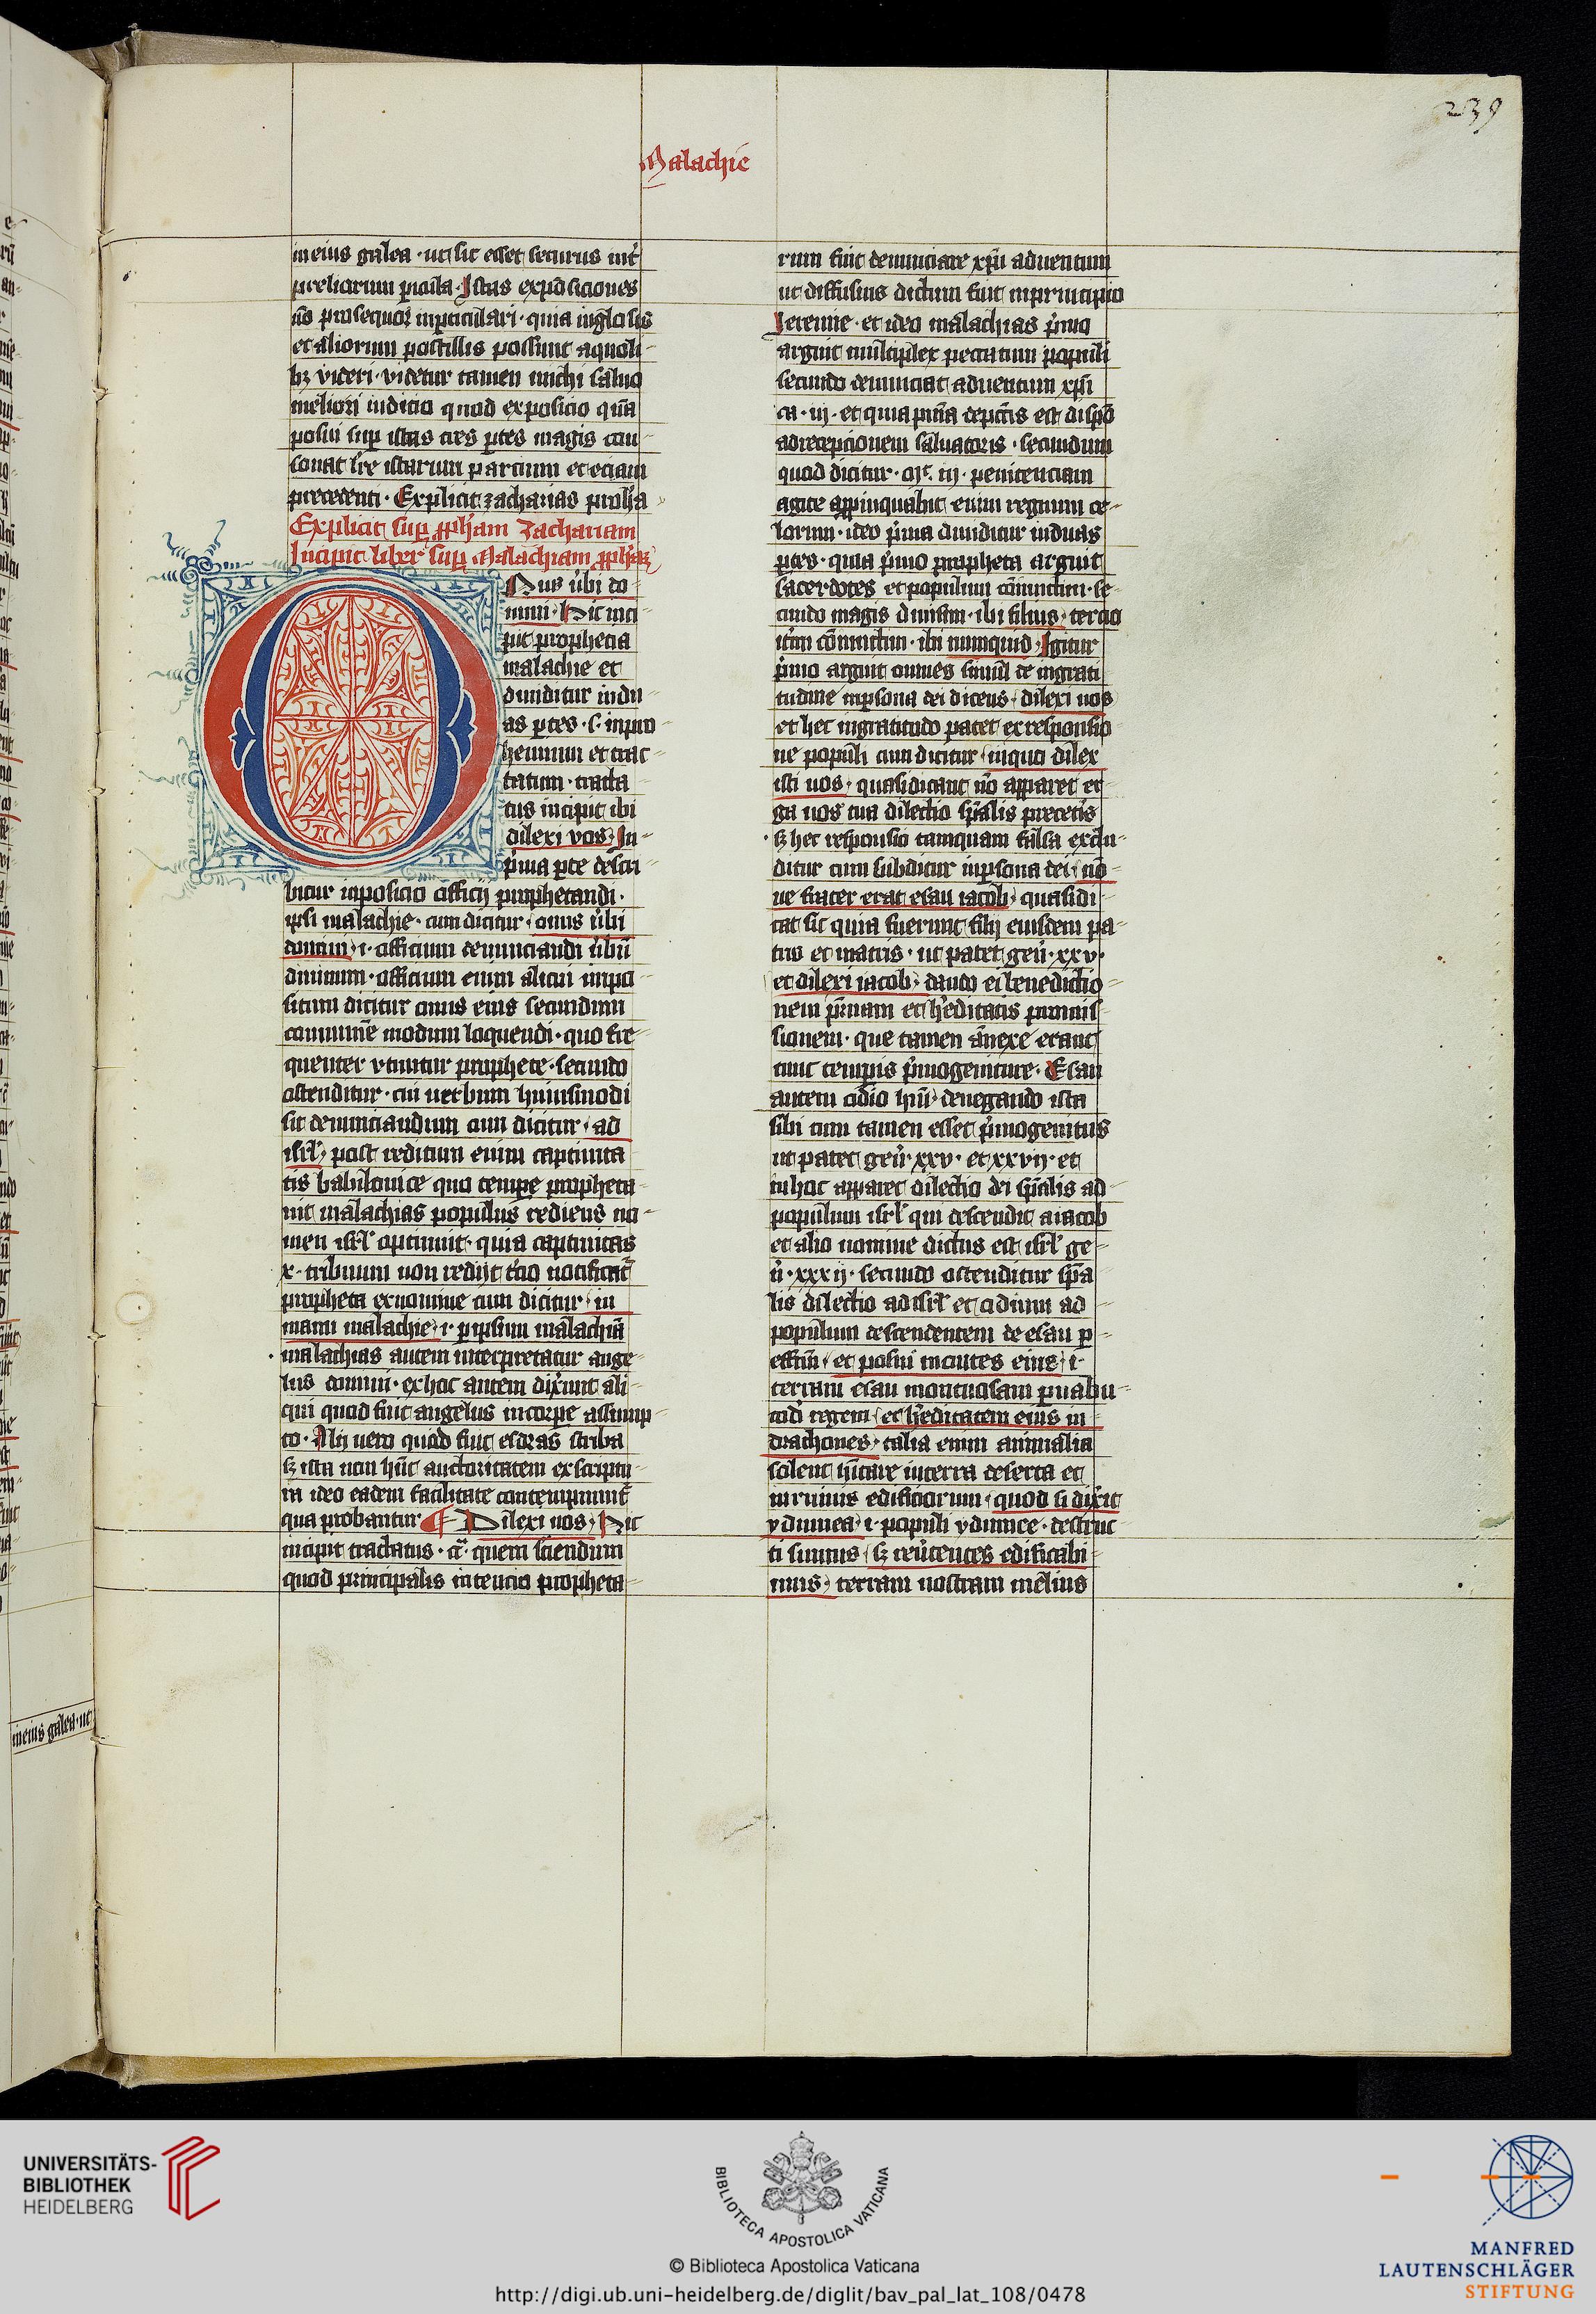 239
Malachie
in eius galea · ut sic esset securus int̉
preliorum picula · Istas exposiciones
nō prosequor inpticulari · quia inglosis
et aliorum postillis possunt aquoli-
bꝫ videri · videtur tamen michi saluo
meliori iudicio quod exposicio quā
posui sup istas tres ptes magis con-
sonat lr̄e istarum parcium et eciam
precedenti · Explicit zacharias proph̄a
Explicit sup ꝓph̄am Zachariam
Incipit liber sup Malachiam ꝓph̄aꝫ
Onus ūbi do-
mini · Hic inci
pit prophecia
malachie et
diuiditur indu-
as ptes · s · inpro
hemium et trac-
tatum · tracta
tus incipit ibi
dilexi vos · In
p̄ma pte descri-
bitur inposicio officij prophetandi ·
ipsi malachie · cum dicitur · onus ūbi
domini · i · officium denunciandi ūbū
diuinum · officium enim alicui impo-
situm dicitur onus eius secundum
communē modum loquendi · quo fre-
quenter vtuntur prophete · secundo
ostenditur · cui uerbum huiusmodi
sit denunciandum cum dicitur · ad
isrl̄ · post reditum enim captiuita
tis babilonice quo tempe propheta-
uit malachias populus rediens no-
men isrl̄ optinuit · quia captiuitas
x · tribuum non redijt t̄cio notificat̄
propheta ex nomine cum dicitur · in
manu malachie · i · p ipsum malachiā
malachias autem interpretatur ange-
lus domini · exhoc autem dixr̄unt ali-
qui quod fuit angelus in corpe assump-
to · Alij uero quod fuit esdras scriba
sꝫ ista non hn̄t auctoritatem ex scriptu-
ra ideo eadem facilitate contempnunt̄
qua probantur ¶ Dilexi uos · Hic
incipit tractatus · c̄ · quem sciendum
quod principalis intencio propheta-
rum fuit denunciare xp̄i aduentum
ut diffusius dictum fuit inprincipio
Jeremie · et ideo malachias p̄mo
arguit multiplex peccatum populi
secundo denunciat aduentum xp̄i
ca · iij · et quia pur̄ia depctīs est disp̄o
adrecepcionem saluatoris · secundum
quod dicitur · mt̄ · iij · penitenciam
agite appinquabit enim regnum ce-
lorum · ideo p̄ma diuiditur induas
ptes · quia p̄mo propheta arguit
sacerdotes et populum cōiunctim · se-
cundo magis diuisim · ibi filius · tercio
itm̄ cōiunctim · ibi numquid · Igitur
p̄mo arguit omnes simul de ingrati
tudine inpsona dei dicens · dilexi uos
et hec ingratitudo patet ex responsio
ne populi cum dicitur · inquo dilex
isti nos · quasi dicant nō apparet er
ga nos tua dilectio sp̄alis precetis
· sꝫ hec responsio tamquam falsa exclu-
ditur cum subditur inpsona dei · nō-
ne frater erat esau iacob · quasi di-
cat sic quia fuerunt filij eiusdem pa-
tris et matris · ut patet gen̄ · xxv ·
et dilexi iacob · dando ei benedictio-
nem pr̄nam et hēditatis promis-
sionem · que tamen ānexe erant
tunc temporis p̄mogeniture · Esau
autem odio hūi · denegando ista
sibi cum tamen esset p̄mogenitus
ut patet gen̄ · xxv · et xxvij · et
in hoc apparet dilectio dei sp̄alis ad-
populum isrl̄ qui descendit a iacob
et alio nomine dictus est isrl̄ ge-
n̄ · xxxij · secundo ostenditur sp̄a
lis dilectio ad isrl̄ et odium ad
populum descendentem de esau p-
effc̄m · et posui montes eius · i ·
terram esau montuosam p nabu-
cod̄ regem · et hēditatem eius in
drachones · talia enim animalia
solent hītare interra deserta et
in ruinis edificiorum · quod si dixr̄it
ydumea · i · populi ydumee · destruc
ti sumus · sꝫ reūtentes edificabi-
mus · terram nostram melius
in eius galea · ut
UNIVERSITÄTS-
BIBLIOTHEK
HEIDELBERG
BIBLIOTECA APOSTOLICA VATICANA
© Biblioteca Apostolica Vaticana
http://digi.ub.uni-heidelberg.de/diglit/bav_pal_lat_108/0478
MANFRED
LAUTENSCHLÄGER
STIFTUNG